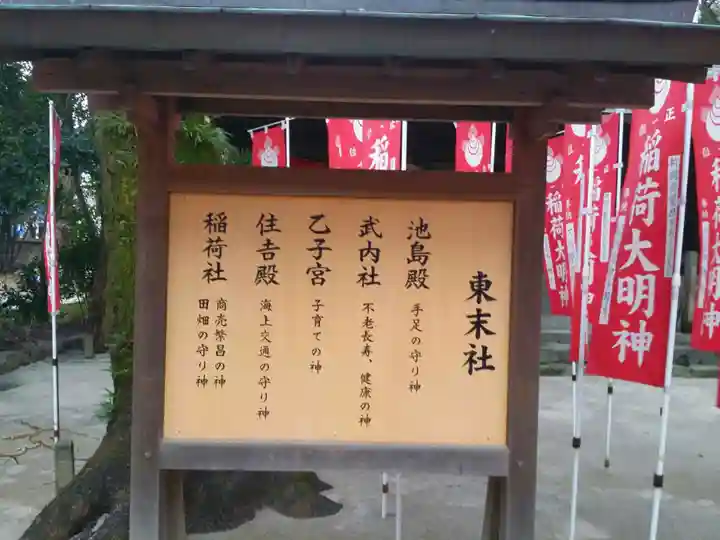 東末社
池島殿 手足の守り神
武内社 不老長寿、健康の神
乙子宮 子育ての神
住吉殿 海上交通の守り神
稲荷社 商売繁昌の神
田畑の守り神
稲
正
稲荷大明神
稲荷大明神
稲荷大明神